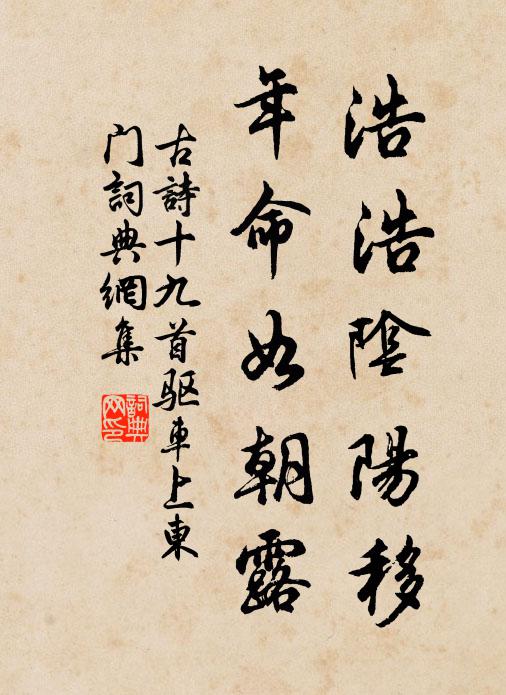 浩浩陰陽移
年命如朝露
古詩十九首驱車上東
门詞典網集
詞典
网印